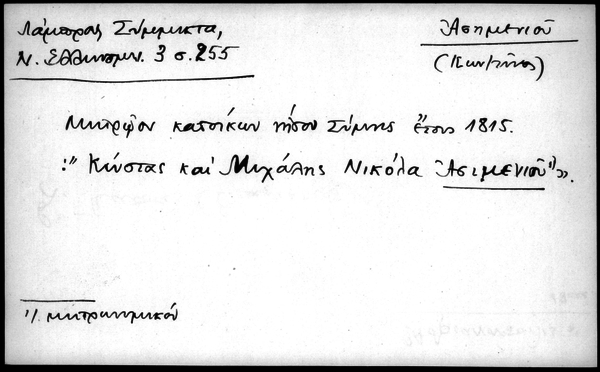 Λάμπρος Σύμμικτα,
Ν. Ελληνομν. 3 σ. 255
Ἀσημενιοῦ
(Κων/τῖνος)
Μητρῷον κατοίκων νήσου Σύμης ἔτους 1815.
:" Κώστας καὶ Μιχάλης Νικόλα Ἀσιμενιοῦ¹⁾».
1/. μητρωνυμικόν